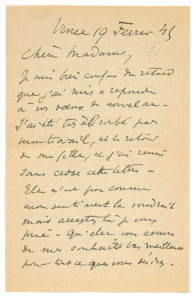 Vence 19 Fevrier 45
Chère Madame,
Je suis bien confus du retard
que j'ai mis a repondre
à vos vœux de nouvel an -
J'ai été très absorbé par
mon travail, et le retour
de ma fille, et j'ai remis
sans cesse cette lettre -
Elle n'est pas comme
mon sentiment le voudrait
mais acceptez la je vous
prie - Qu'elle vous assure
de mes souhaits les meilleurs
pour tout ce que vous désirez.